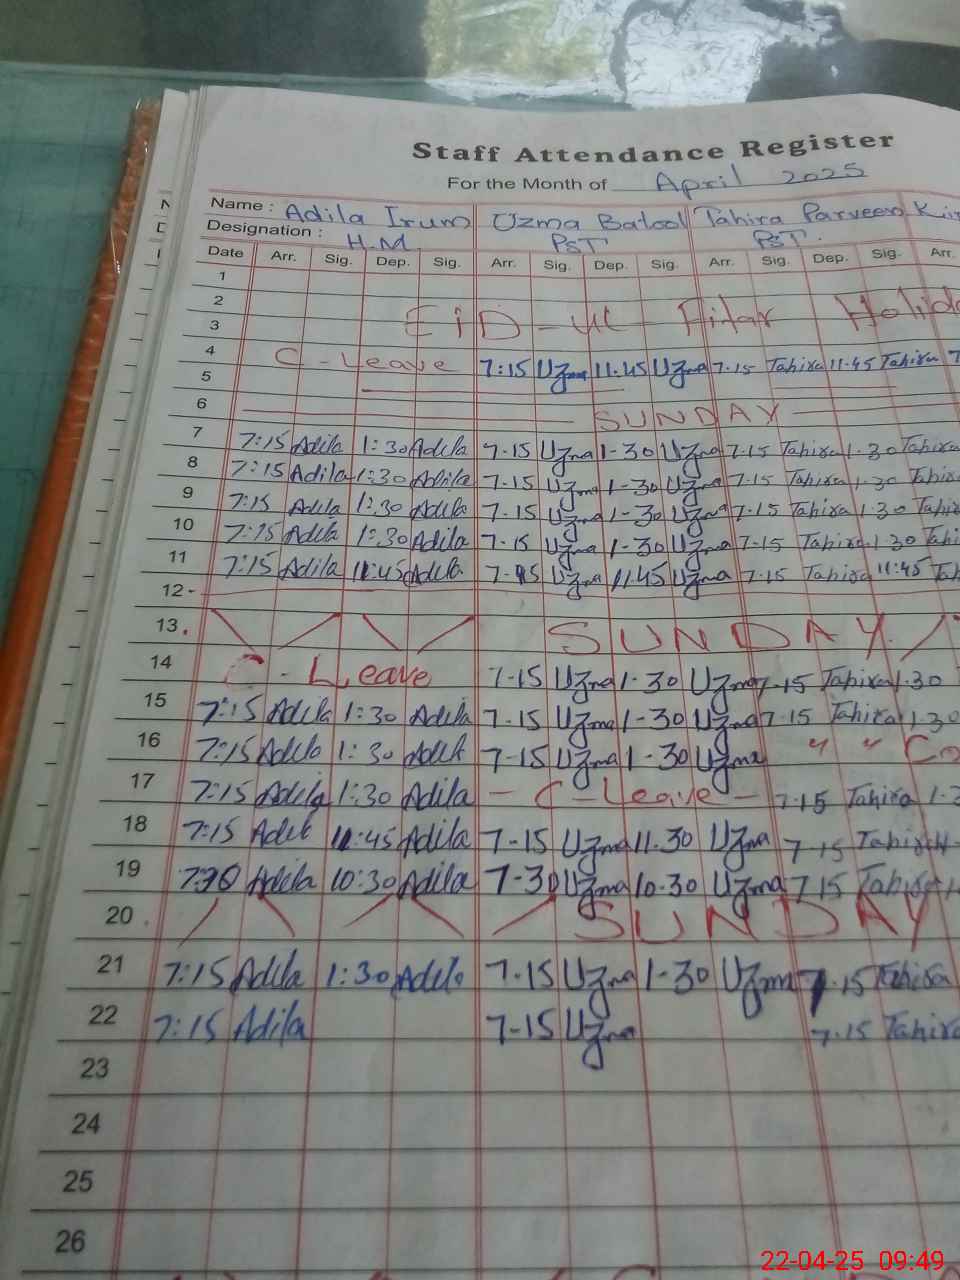 Staff Attendance Register
For the Month of April 2025
Name : Adila Irum Uzma Batool Tahira Parveen
Designation : H.M. PST PST.
Date Arr. Sig. Dep. Sig. Arr. Sig. Dep. Sig. Arr. Sig. Dep. Sig. Arr.
1
2
3 EiD-ul-Fitar Holid
4 C-Leave 7:15 Uzma 11.45 Uzma 7-15 Tahira 11-45 Tahira
5
6 SUNDAY
7 7:15 Adila 1:30 Adila 7-15 Uzma 1-30 Uzma 7-15 Tahira 1-30 Tahira
8 7:15 Adila 1:30 Adila 7-15 Uzma 1-30 Uzma 7-15 Tahira 1-30 Tahira
9 7:15 Adila 1:30 Adila 7-15 Uzma 1-30 Uzma 7-15 Tahira 1-30 Tahira
10 7:15 Adila 1:30 Adila 7-15 Uzma 1-30 Uzma 7-15 Tahira 1-30 Tahi
11 7:15 Adila 11:45 Adila Uzma 11.45 Uzma 7-15 Tahira 11:45 Tah
12 -
13. SUNDAY
14 C-Leave 7-15 Uzma 1-30 Uzma 7-15 Tahira 1-30
15 7:15 Adila 1:30 Adila 7-15 Uzma 1-30 Uzma 7-15 Tahira 1-30
16 7:15 Adila 1:30 Adila 7-15 Uzma 1-30 Uzma " "
17 7:15 Adila 1:30 Adila - C-Leave - 7-15 Tahira
18 7:15 Adila 11:45 Adila 7-15 Uzma 11.30 Uzma 7-15 Tahira
19 7:30 Adila 10:30 Adila 7-30 Uzma 10-30 Uzma 7-15 Tahira
20. SUNDAY
21 7:15 Adila 1:30 Adila 7-15 Uzma 1-30 Uzma 7-15 Tahira
22 7:15 Adila 7-15 Uzma 7-15 Tahira
23
24
25
26
22-04-25 09:49